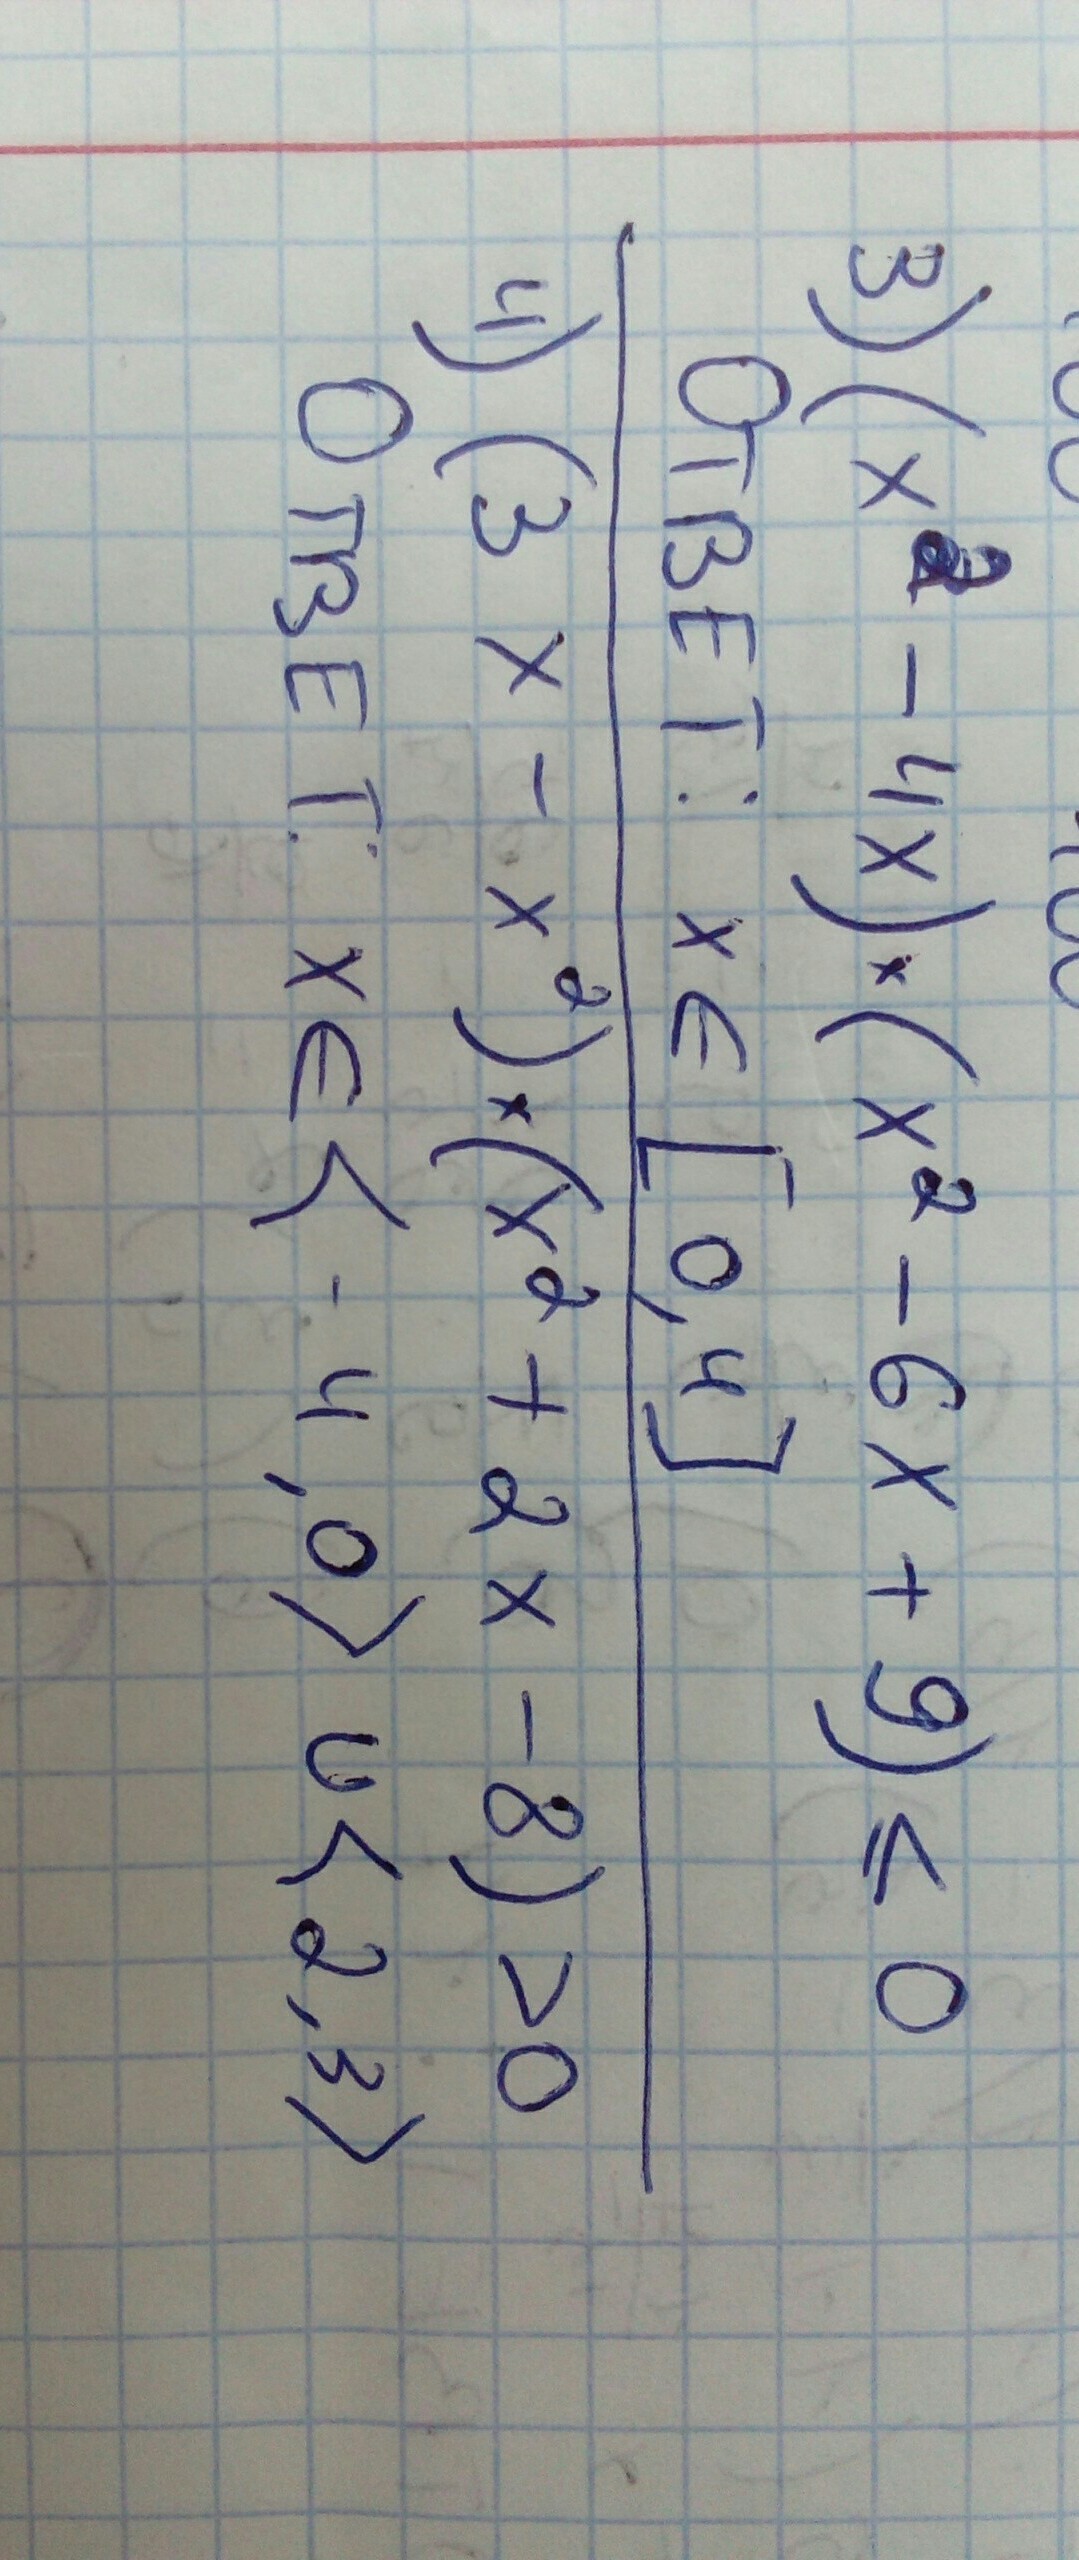 3) (x² - 4x) × (x² - 6x + 9) ≤ 0
ОТВЕТ: x ∈ [0, 4]
4) (3x - x²) × (x² + 2x - 8) > 0
ОТВЕТ: x ∈ < -4, 0 > ∪ < 2, 3 >